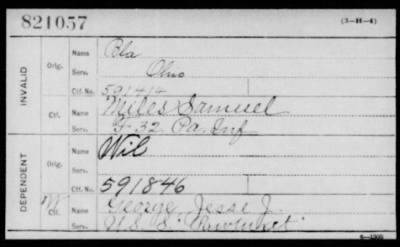 821057 (3-H-4)
INVALID
Orig. Name Bla
Serv. Ohio
Ctf. No. 591414
Ctf. Name Miles Samuel
Serv. F 32. Pa. Inf
DEPENDENT
Orig. Name Wil
Serv.
Ctf. No. 591846
Ctf. Name George, Jesse J.
Serv. U.S.S.
6-1308